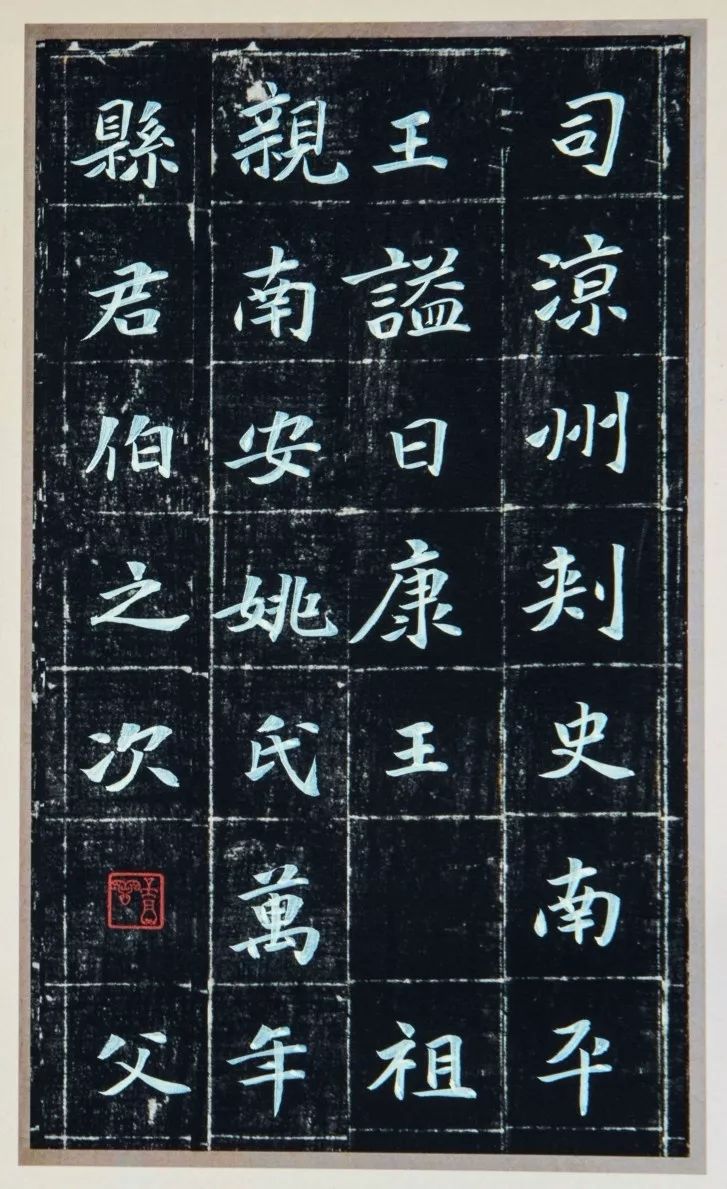 司涼州刾史南平
王謚日康王祖
親南安姚氏萬年
縣君伯之次父